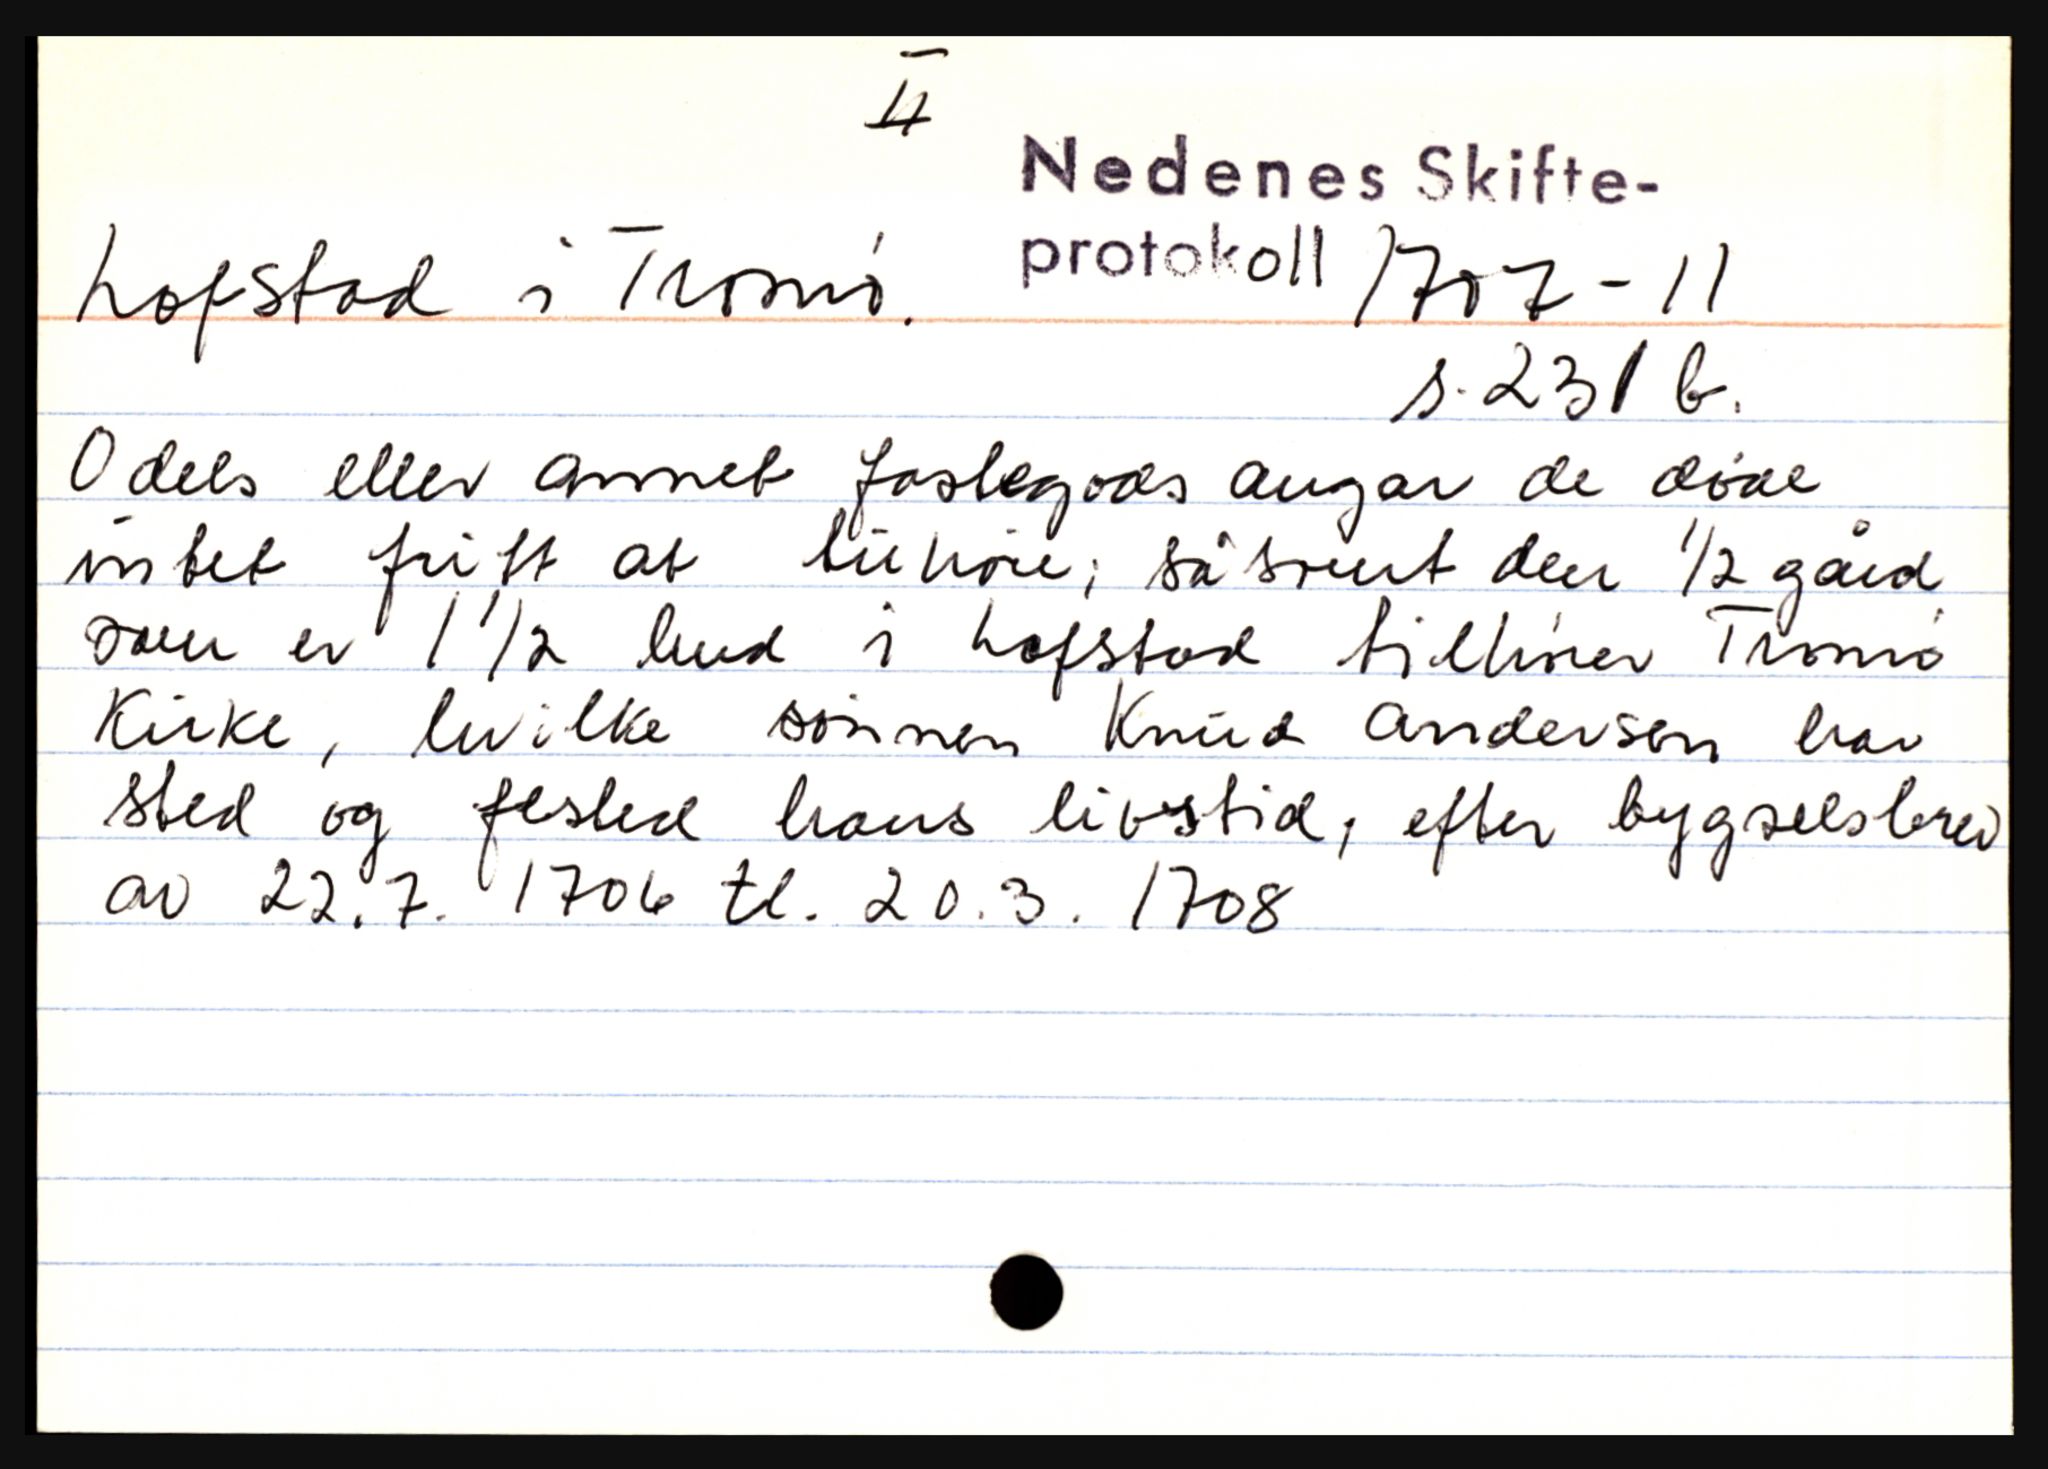 II
Nedenes Skifte-
Lofstad i Tromø. protokoll 1707-11
s. 231 b.
Odels eller annet fastegods angar de døde
intet fritt at tilhøre; såsrent den 1/2 gård
som er 1 1/2 hud i Lofstad tilhører Tromø
Kirke, hvilke sønnen Knud Andersen har
sted og fested hans livstid, efter bygselsbrev
av 22.7. 1706 tl. 20.3. 1708